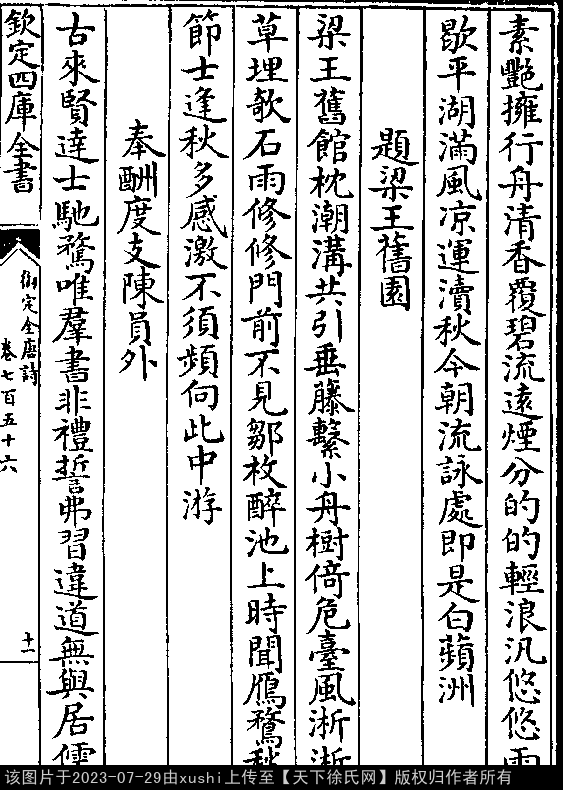 素艷擁行舟清香覆碧流遠煙分的的輕浪汎悠悠雨
歇平湖滿風凉運瀆秋今朝流詠處即是白蘋洲
題梁王舊園
梁王舊館枕潮溝共引垂藤繫小舟樹倚危臺風淅淅
草埋欹石雨修修門前不見鄒枚醉池上時聞鴈鶩秋
節士逢秋多感激不須頻向此中游
奉酬度支陳員外
古來賢達士馳騖唯羣書非禮誓弗習違道無與居儒
欽定四庫全書
御定全唐詩
卷七百五十六
十一
该图片于2023-07-29由xushi上传至【天下徐氏网】版权归作者所有